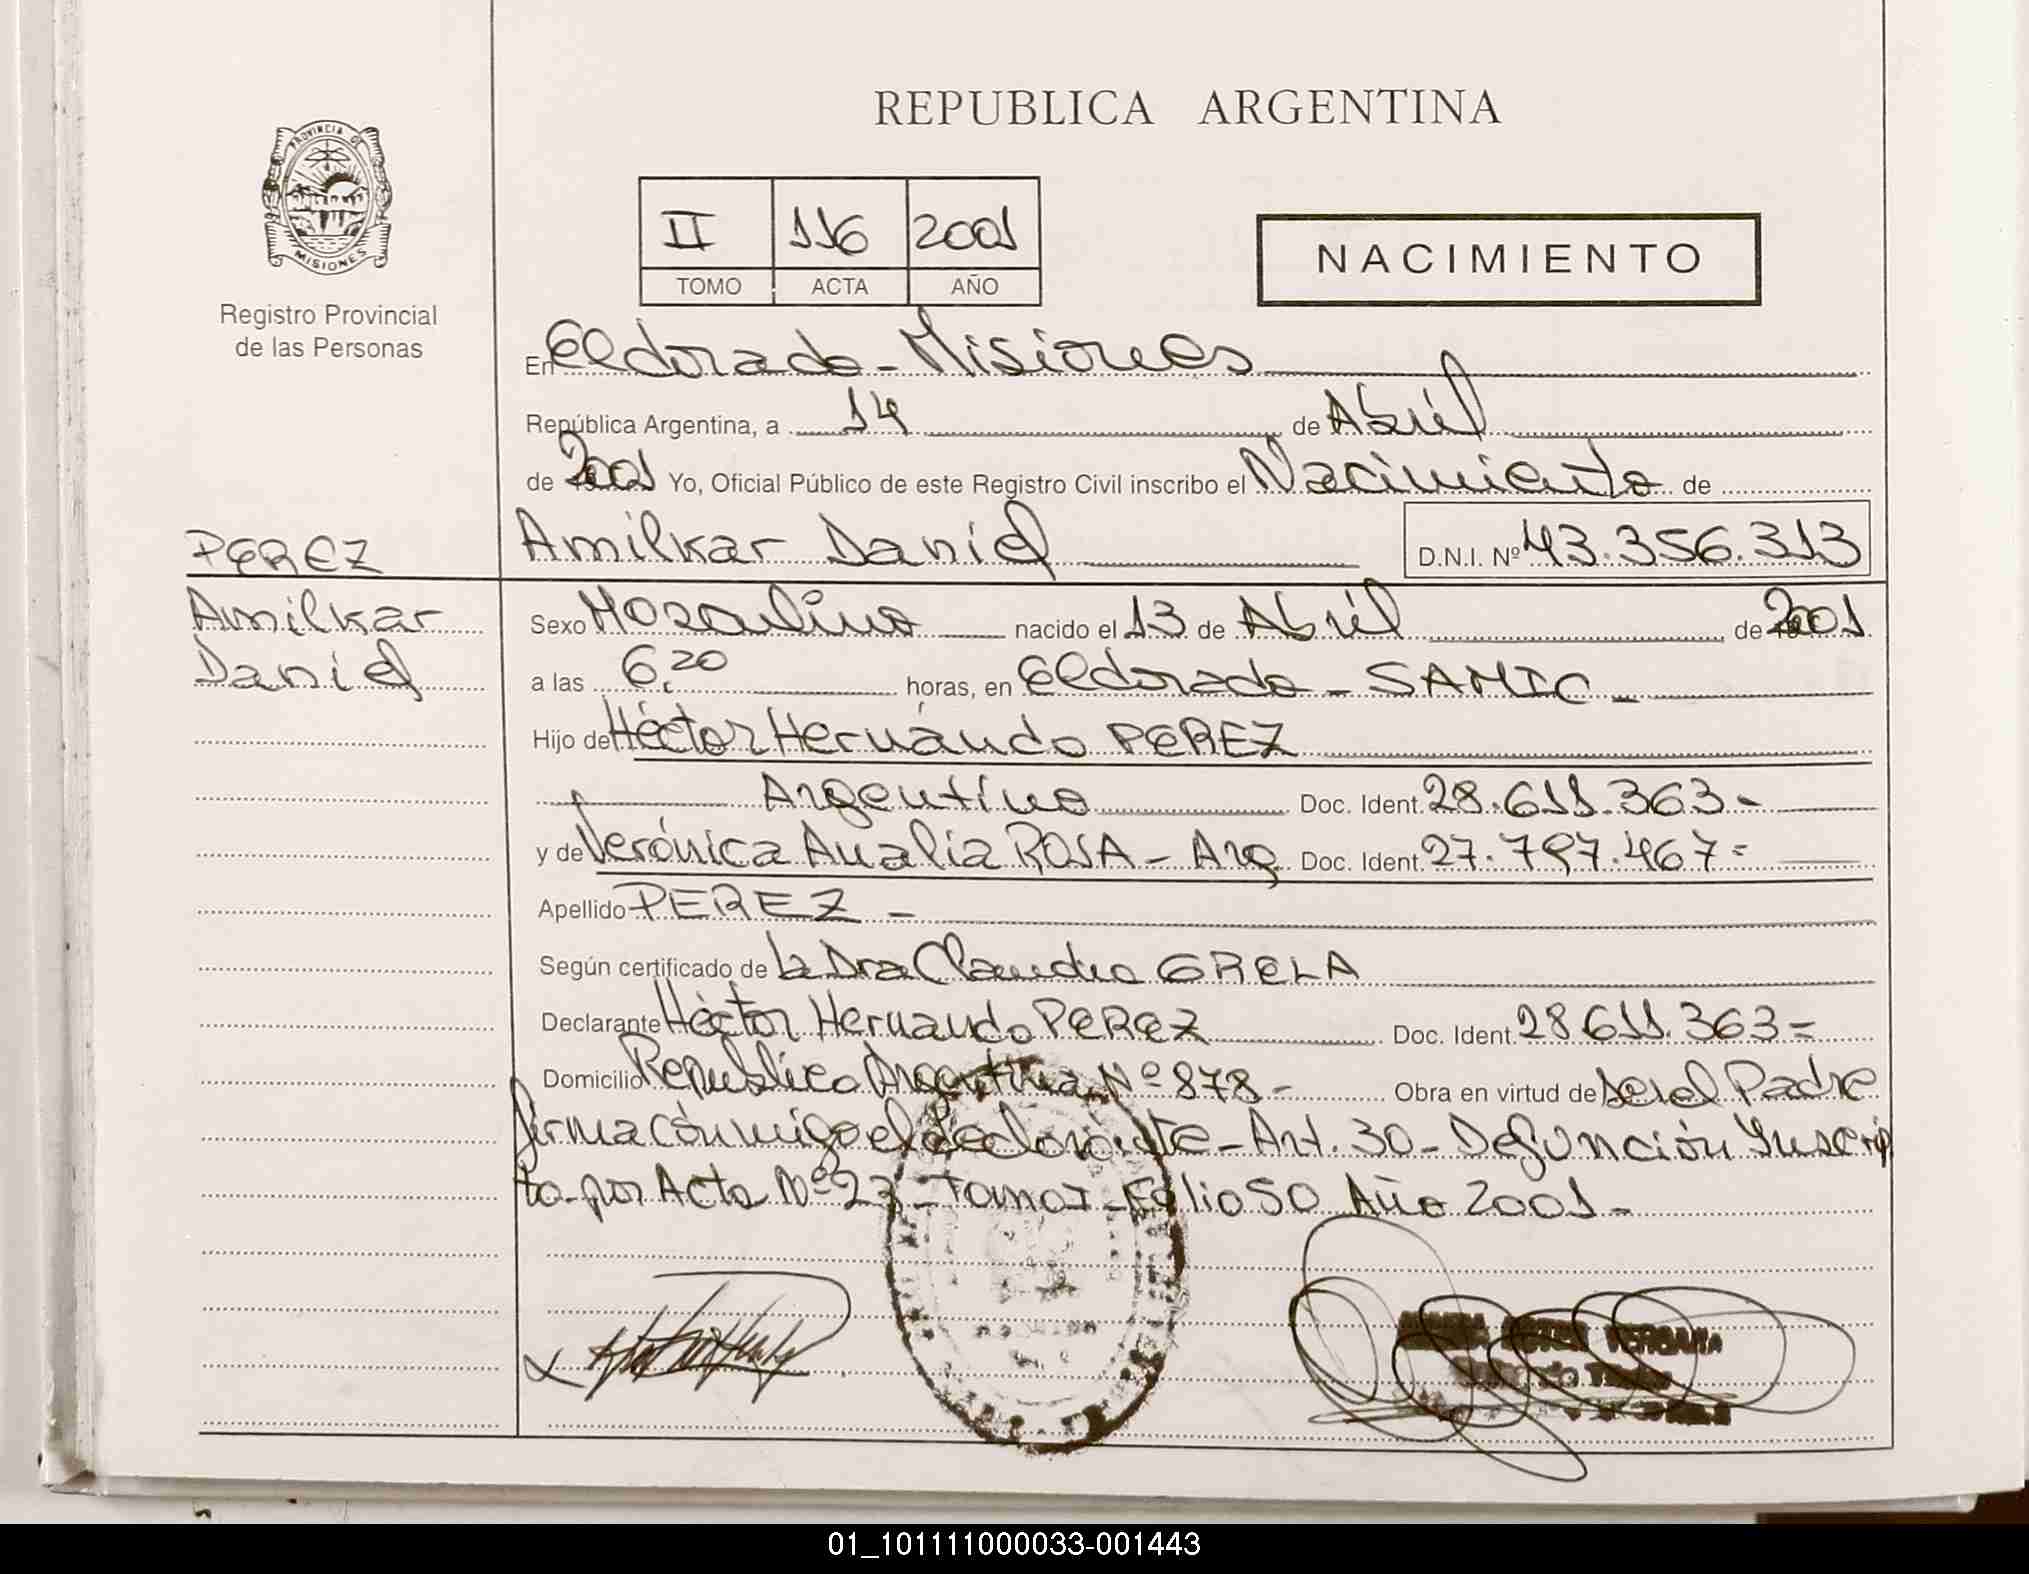 REPUBLICA ARGENTINA
PROVINCIA DE
MISIONES
Registro Provincial
de las Personas
II 116 2001
TOMO ACTA AÑO
NACIMIENTO
En Eldorado - Misiones
República Argentina, a 14 de Abril
de 2001 Yo, Oficial Público de este Registro Civil inscribo el Nacimiento de
PEREZ
Amilkar Daniel D.N.I. Nº 43.356.313
Amilkar
Daniel
Sexo Masculino nacido el 13 de Abril de 2001
a las 6:20 horas, en Eldorado - SAMIC -
Hijo de Héctor Hernándo PEREZ
Argentino Doc. Ident. 28.611.363 -
y de Verónica Analía ROSA - Arg Doc. Ident. 27.797.467 =
Apellido PEREZ -
Según certificado de la Dra Claudia GRELA
Declarante Héctor Hernando PEREZ Doc. Ident. 28.611.363 =
Domicilio República Argentina Nº 878 - Obra en virtud de Ser el Padre
firma conmigo el declarante - Art. 30 - Defunción Inscrip
ta por Acta Nº 23 - Tomo I - Folio 50 Año 2001 -
01_101111000033-001443